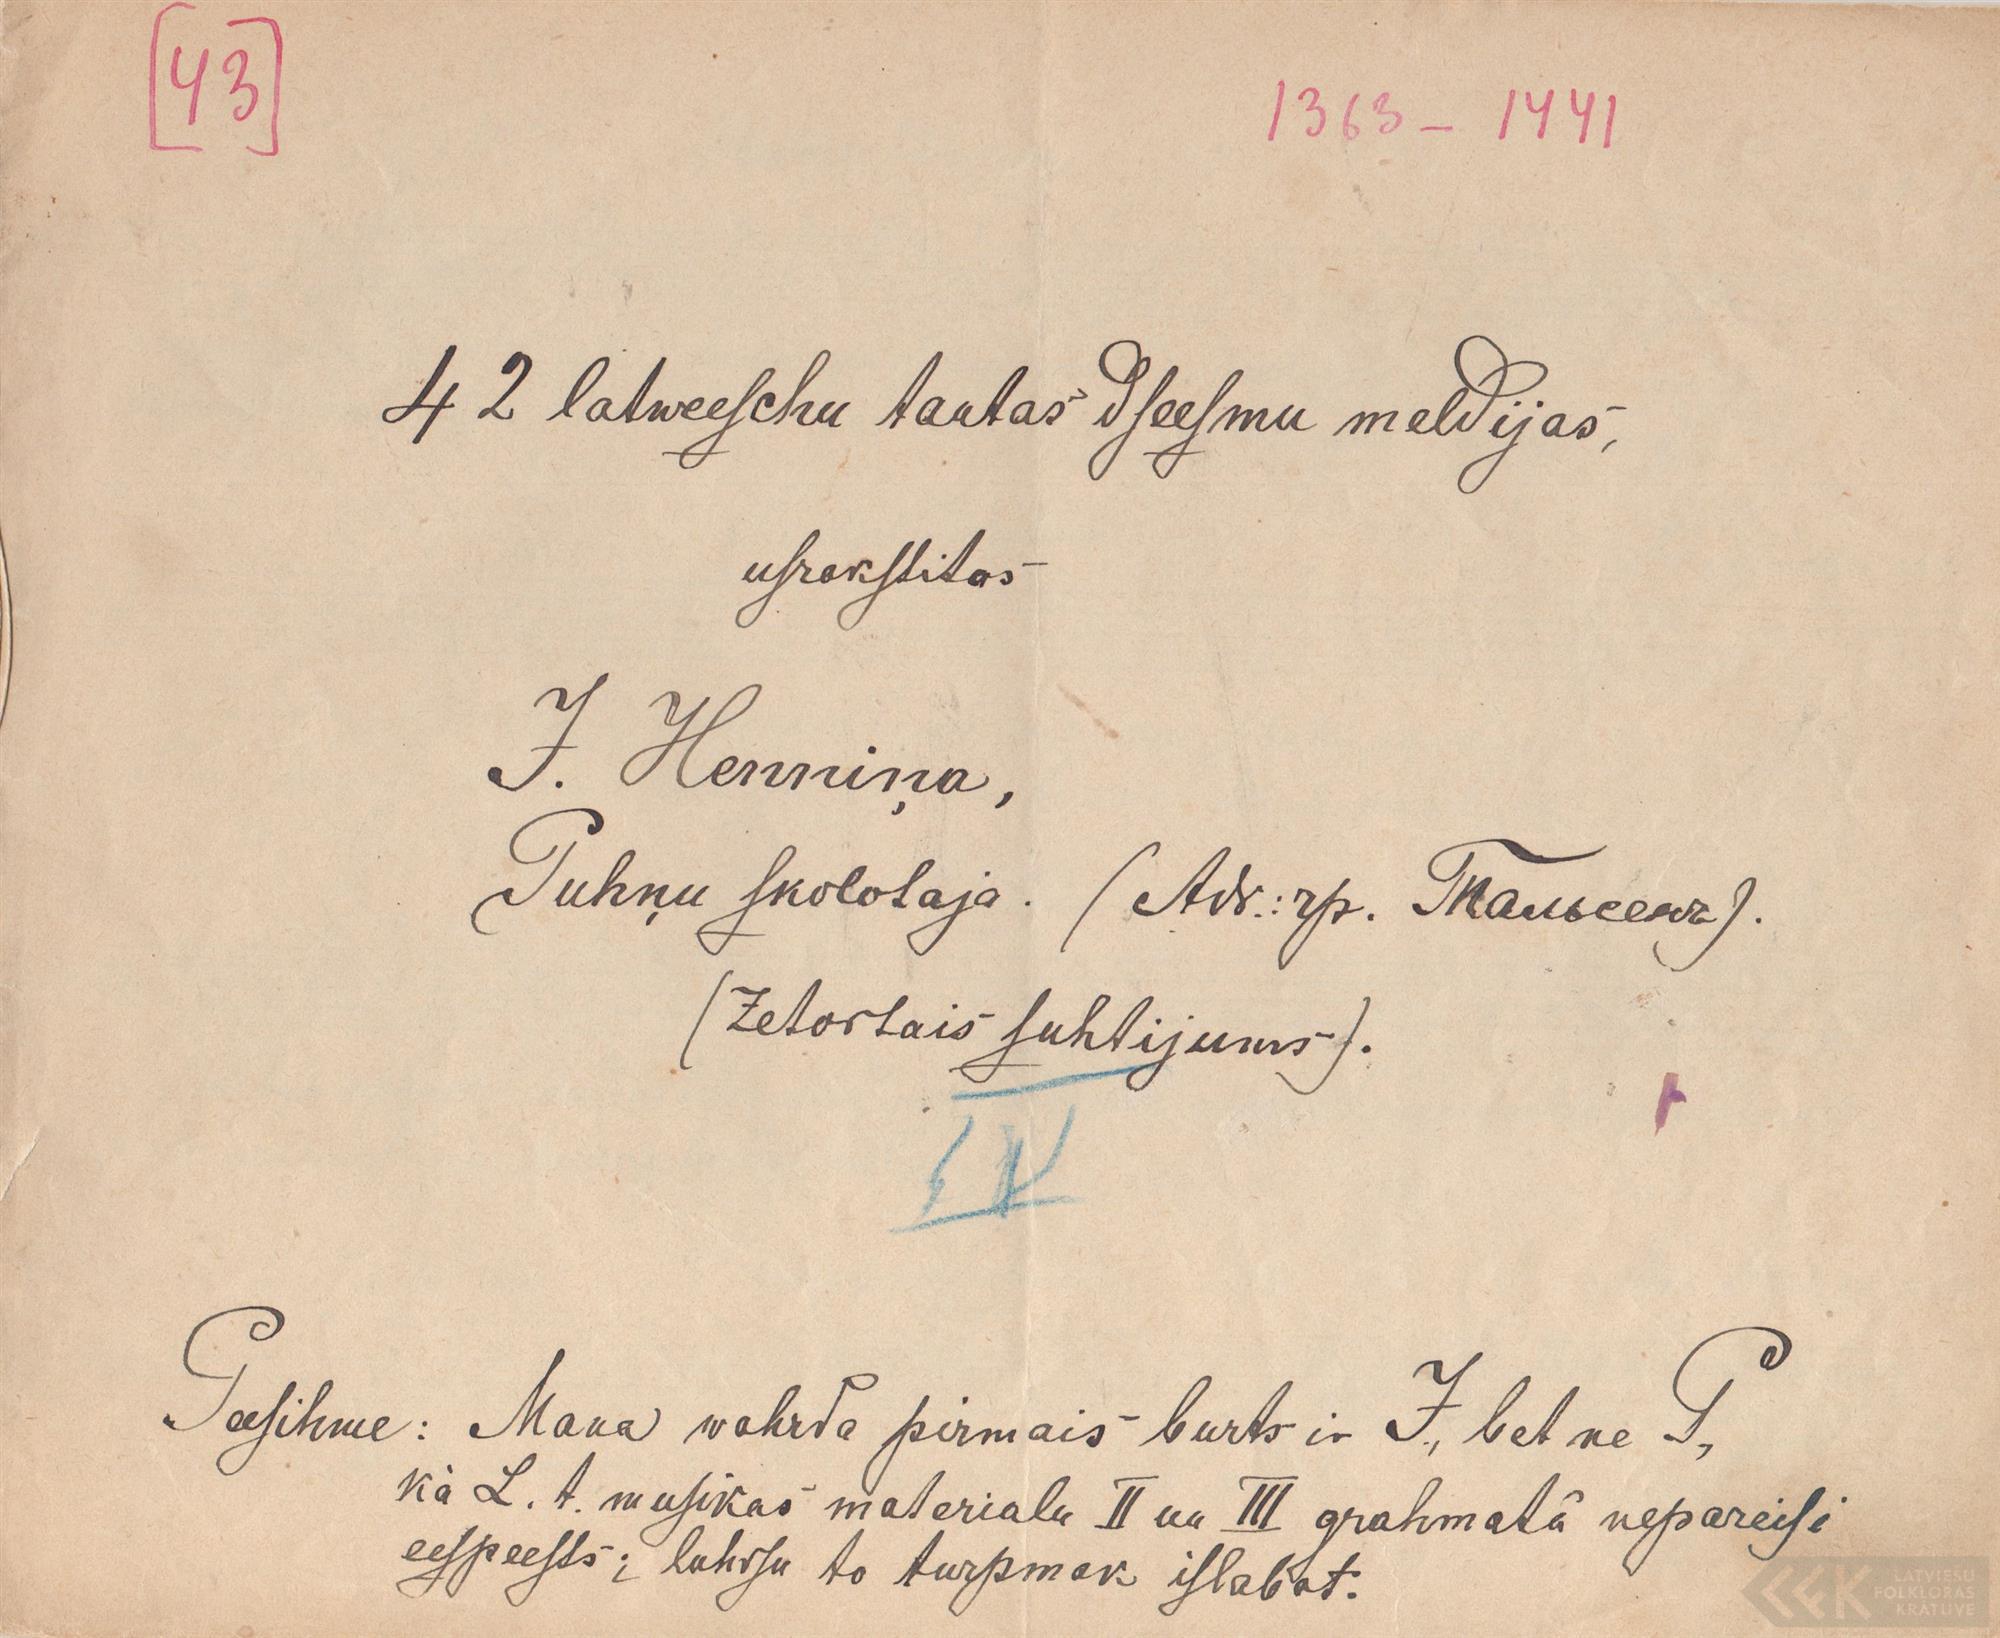 [43]
1363 – 1441
42 latweeſchu tautas dſeeſmu meldijas,
uſrakſtitas
J. Henniņa,
Puhņu ſkolotaja. (Adr.: гр. Тальсенъ).
(Zetortais ſuhtijums).
IV
Peeſihme: Mana wahrda pirmais burts ir J., bet ne P.,
kà L. t. muſikas materialu II un III grahmatâ nepareiſi
eeſpeeſts; luhdſu to turpmak iſlabot.
LATVIEŠU
FOLKLORAS
KRĀTUVE